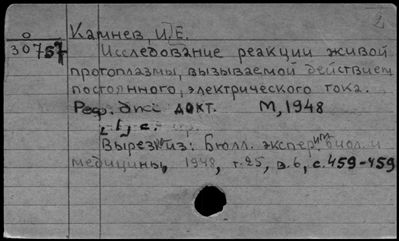 2
О Камнев, И. Е.
30757 Исследование реакции живой
протоплазмы, вызываемой действием
постоянного электрического тока.
Реф. дис докт. М, 1948
[1] с.
Вырез. из: Бюлл. экспер. биол. и
медицины, 1948, т. 25, в. 6, с. 459-459